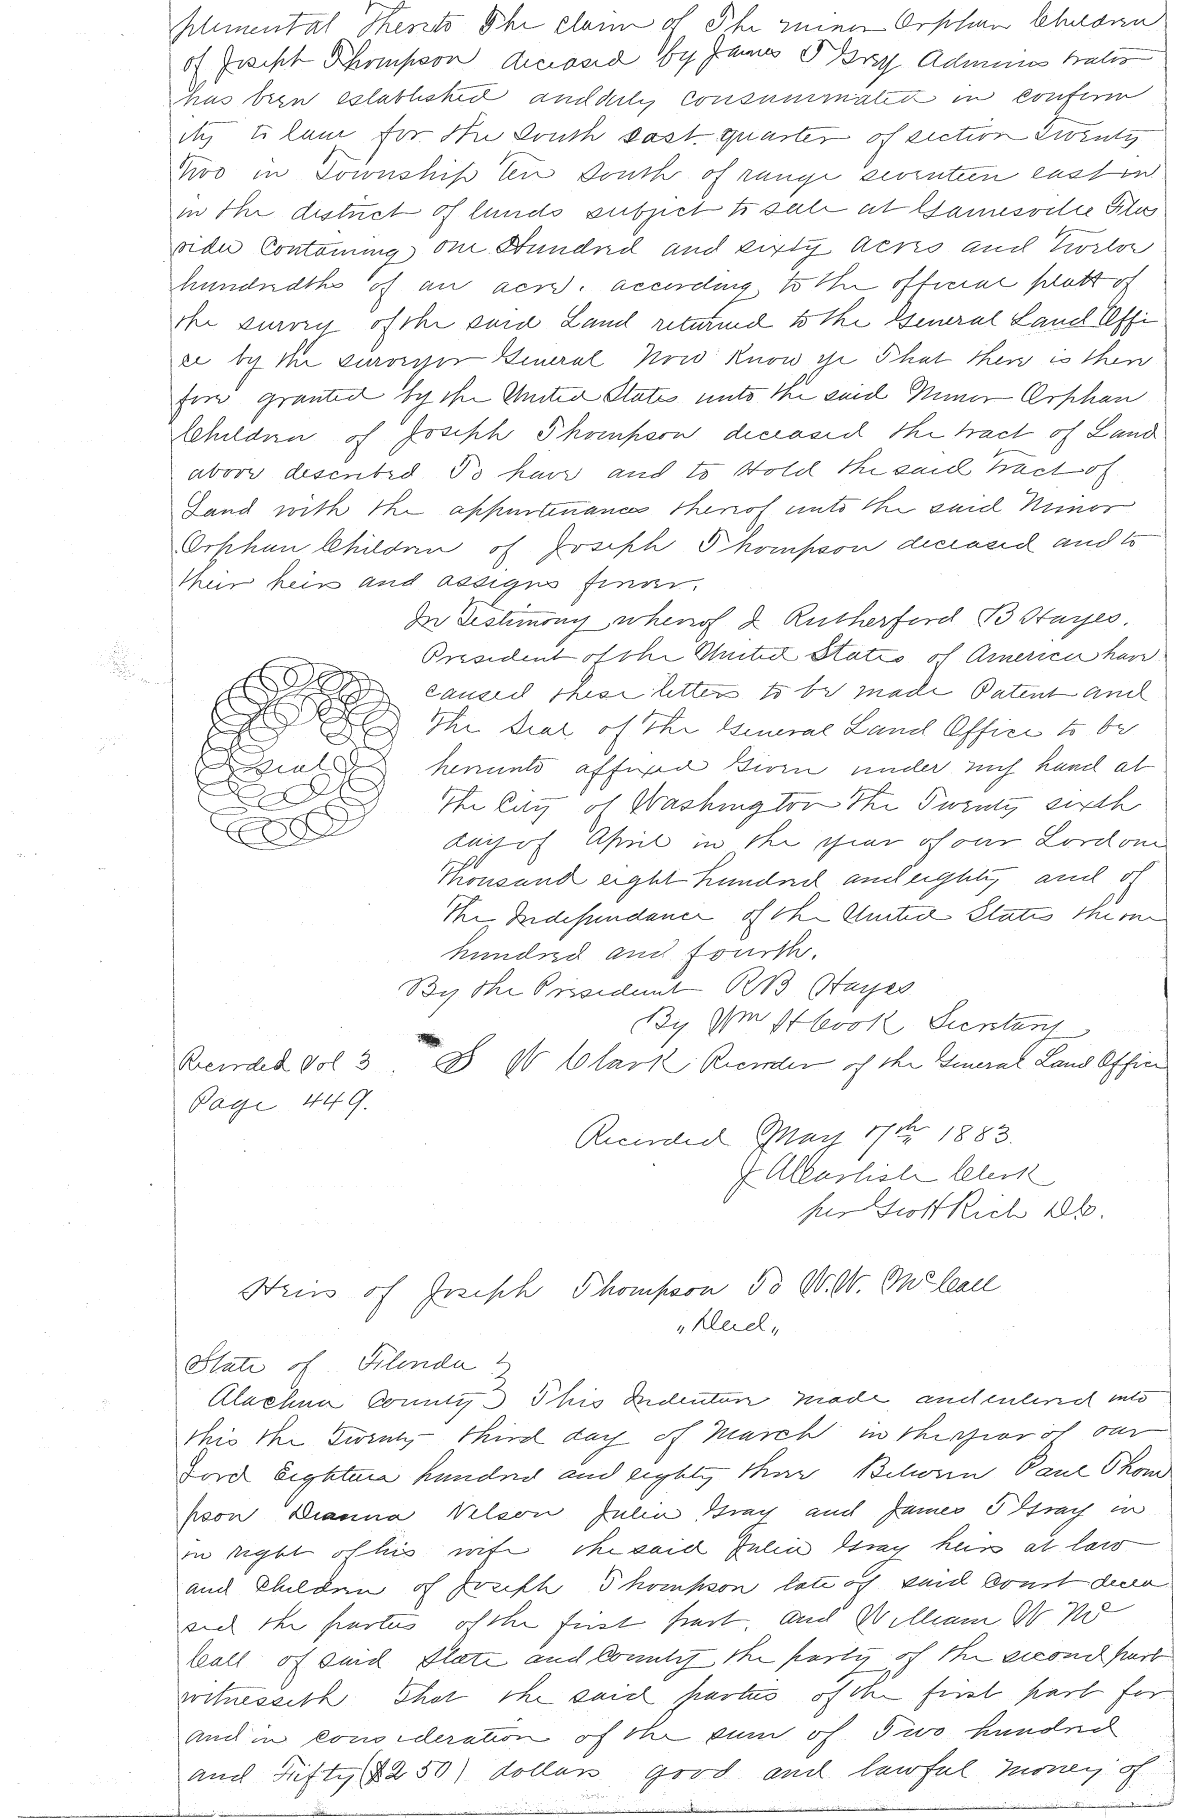 plemental Thereto The claim of The minor Orphan Children
of Joseph Thompson deceased by James T Gray Adminis trator
has been established and duly consummated in conform
ity to law for the South east quarter of section Twenty
Two in Township Ten South of range seventeen east in
in the district of lands subject to sale at Gainesville
Containing one Hundred and sixty acres and Twelve
hundredths of an acre. according to the official platt of
the survey of the said Land returned to the General Land Offi
ce by the surveyor General Now Know ye That there is there
fore granted by the United States unto the said Minor Orphan
Children of Joseph Thompson deceased the tract of Land
above described To have and to Hold the said Tract of
Land with the appurtenances thereof unto the said Minor
Orphan Children of Joseph Thompson deceased and to
their heirs and assigns forever.
In Testimony whereof I Rutherford B Hayes.
President of the United States of America have
caused these letters to be made Patent and
The Seal of The General Land Office to be
Seal
hereunto affixed Given under my hand at
The City of Washington The Twenty sixth
day of April in the year of our Lord one
Thousand eight hundred and eighty and of
The Independance of the United States the one
hundred and fourth.
By the President RB Hayes
By Wm H Cook Secretary
Recorded Vol 3. S W Clark Recorder of the General Land Office
Page 449.
Recorded May 17th 1883.
J A Carlisle Clerk
per Scott Rich D C.
Heirs of Joseph Thompson To W. W. McCall
"Deed"
State of Florida
Alachua County } This Indenture made and entered into
this the Twenty third day of March in the year of our
Lord Eighteen hundred and eighty three Between Paul Thom
pson Dianna Nelson Julia Gray and James T Gray in
in right of his wife the said Julia Gray heirs at law
and Children of Joseph Thompson late of said Count decea
sed the parties of the first part. and William W Mc
Call of said State and County the party of the second part
witnesseth That the said parties of the first part for
and in consideration of the sum of Two hundred
and Fifty ($250) dollars good and lawful money of